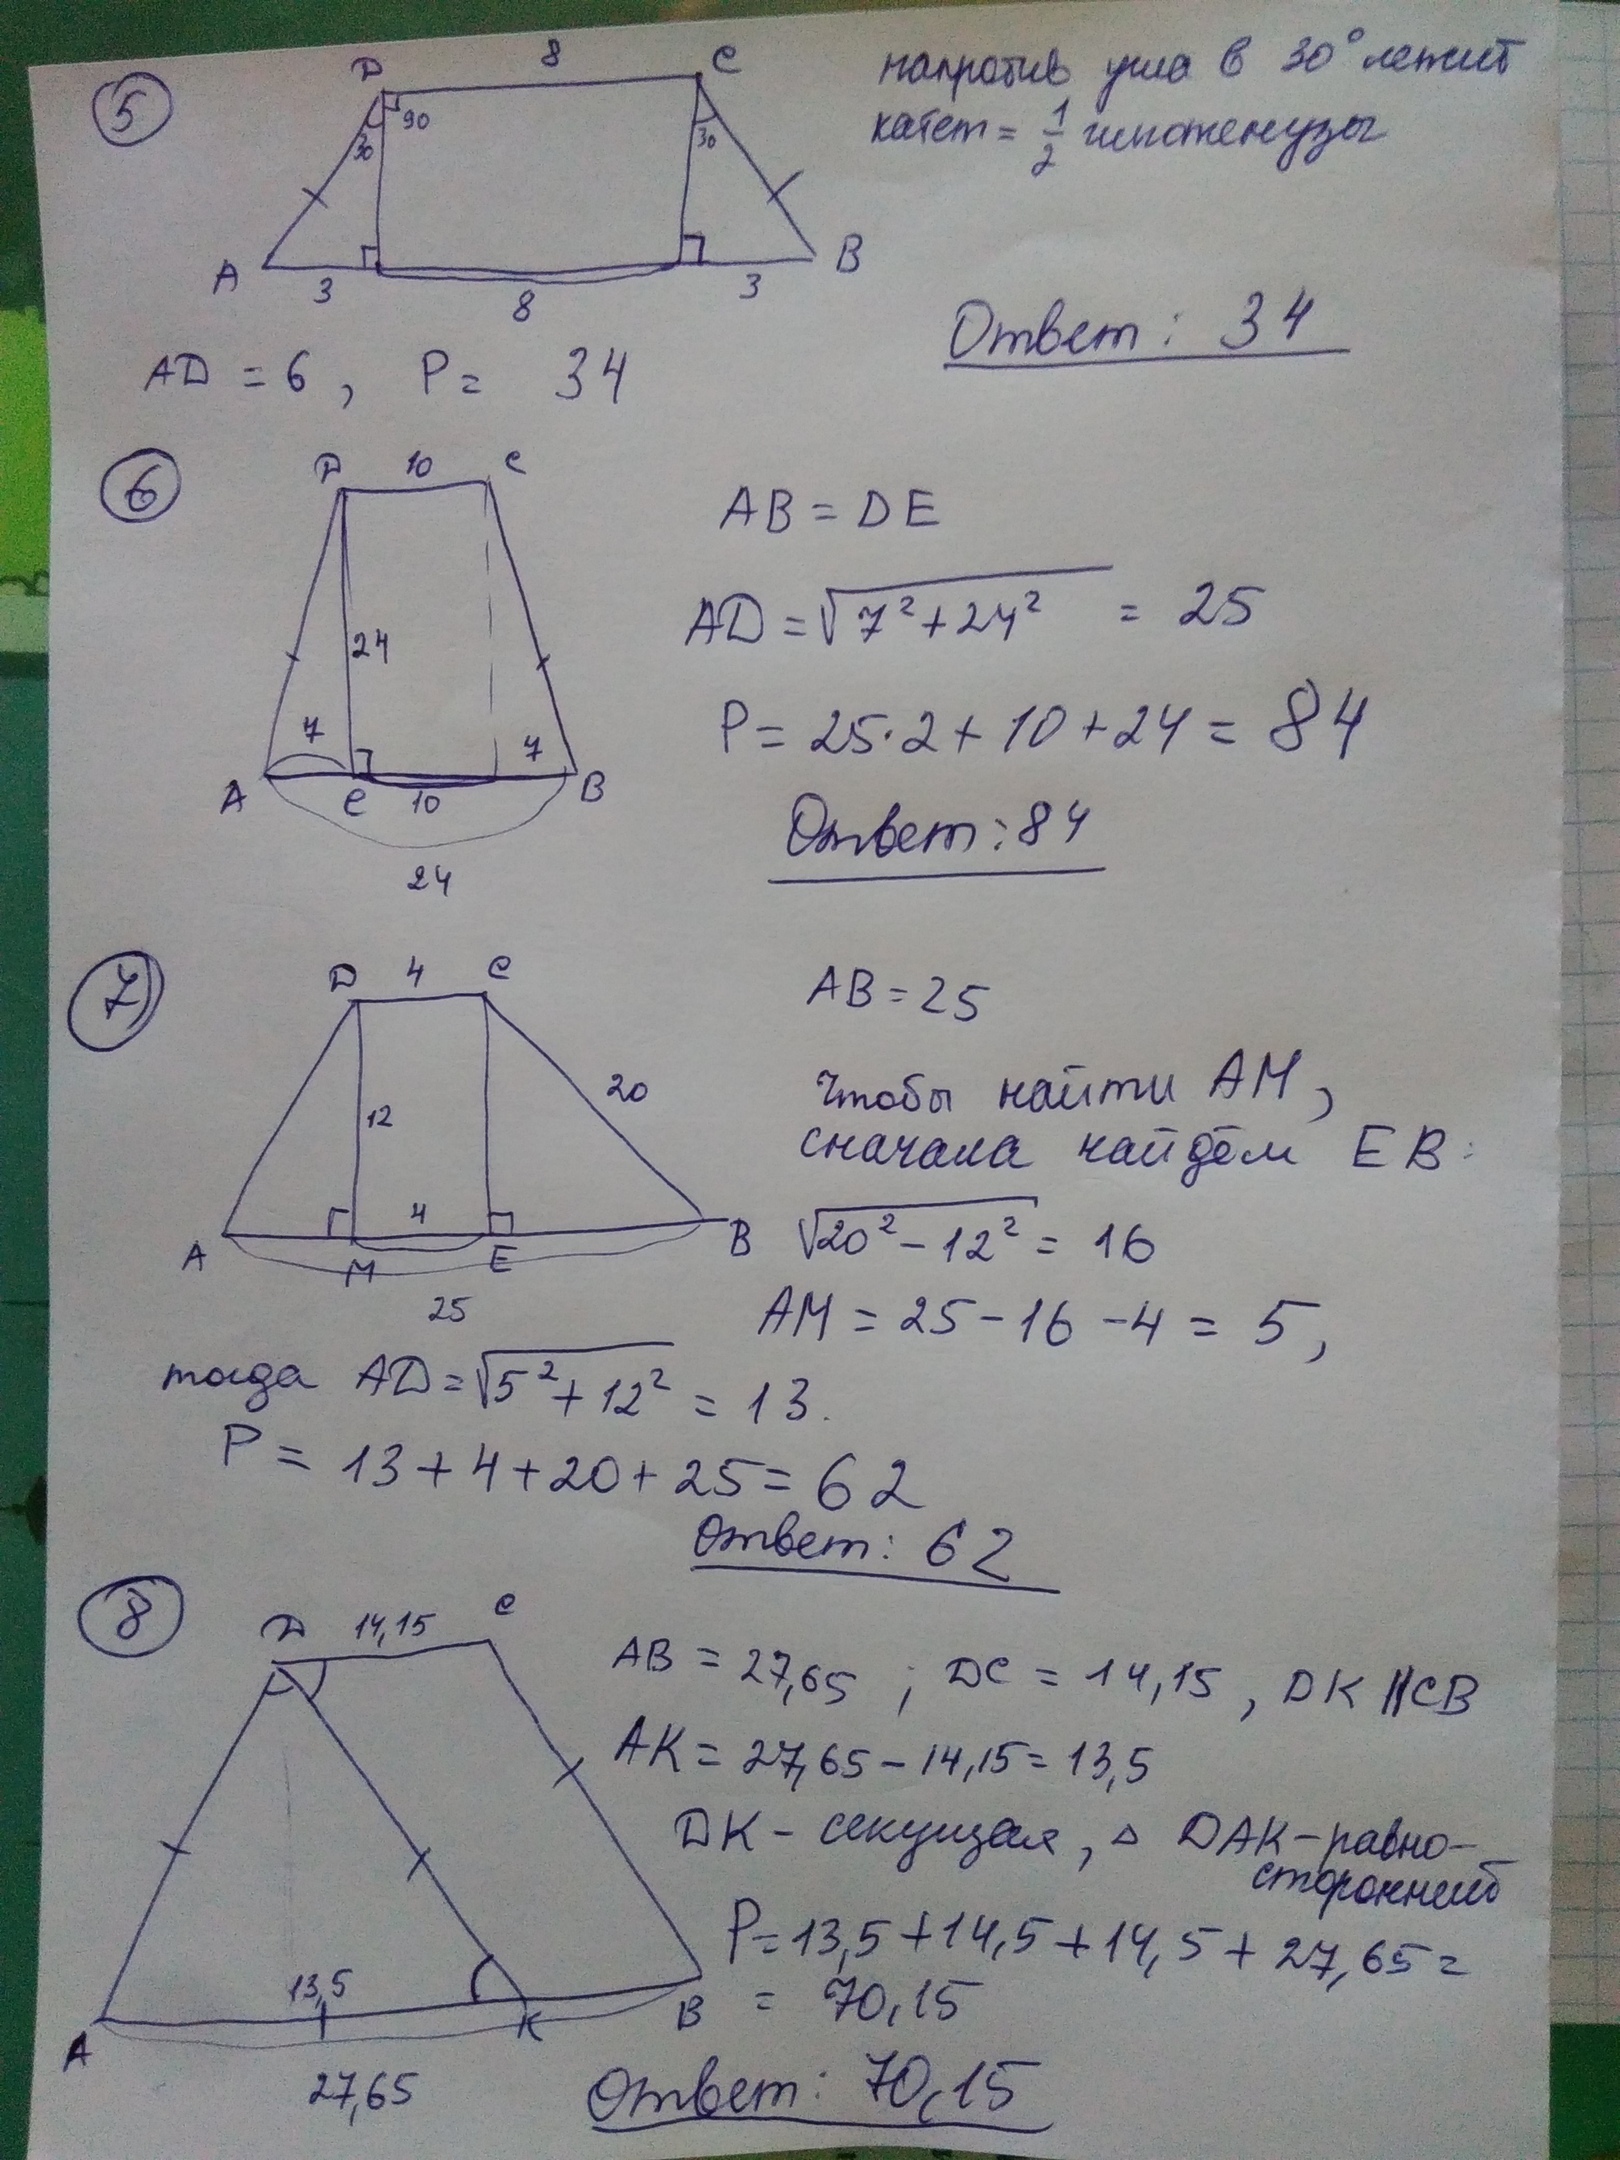 5
D 8 C
90
30
30
A 3 8 3 B
напротив угла в 30° лежит
катет = 1/2 гипотенузы
Ответ: 34
AD = 6, P = 34
6
D 10 C
24
7 7
A C 10 B
24
AB = DE
AD = √7²+24² = 25
P = 25·2+10+24 = 84
Ответ: 84
7
D 4 C
12
20
4
A M E B
25
AB = 25
Чтобы найти AM,
сначала найдём EB:
√20²-12² = 16
AM = 25-16-4 = 5,
тогда AD = √5²+12² = 13.
P = 13+4+20+25 = 62
Ответ: 62
8
D 14,15 C
13,5
A K B
27,65
AB = 27,65 ; DC = 14,15, DK || CB
AK = 27,65-14,15 = 13,5
DK - секущая, △ DAK - равно-
сторонний
P = 13,5+14,5+14,5+27,65 =
= 70,15
Ответ: 70,15